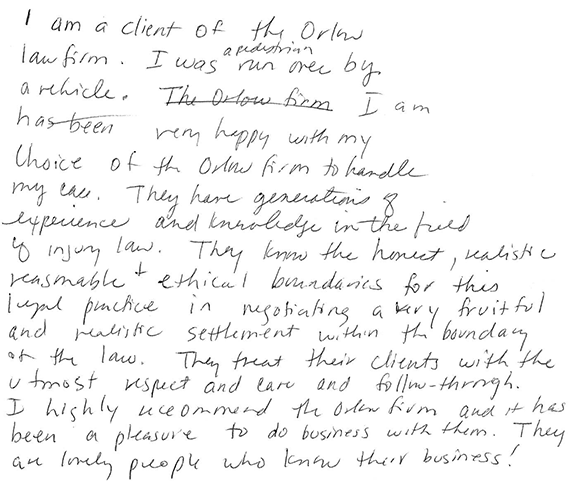 I am a client of the Orlow
law firm. I was a pedestrian run over by
a vehicle. The Orlow firm I am
has been very happy with my
choice of the Orlow firm to handle
my case. They have generations of
experience and knowledge in the field
of injury law. They know the honest, realistic
reasonable + ethical boundaries for this
legal practice in negotiating a very fruitful
and realistic settlement within the boundary
of the law. They treat their clients with the
utmost respect and care and follow-through.
I highly recommend the Orlow firm and it has
been a pleasure to do business with them. They
are lovely people who know their business!